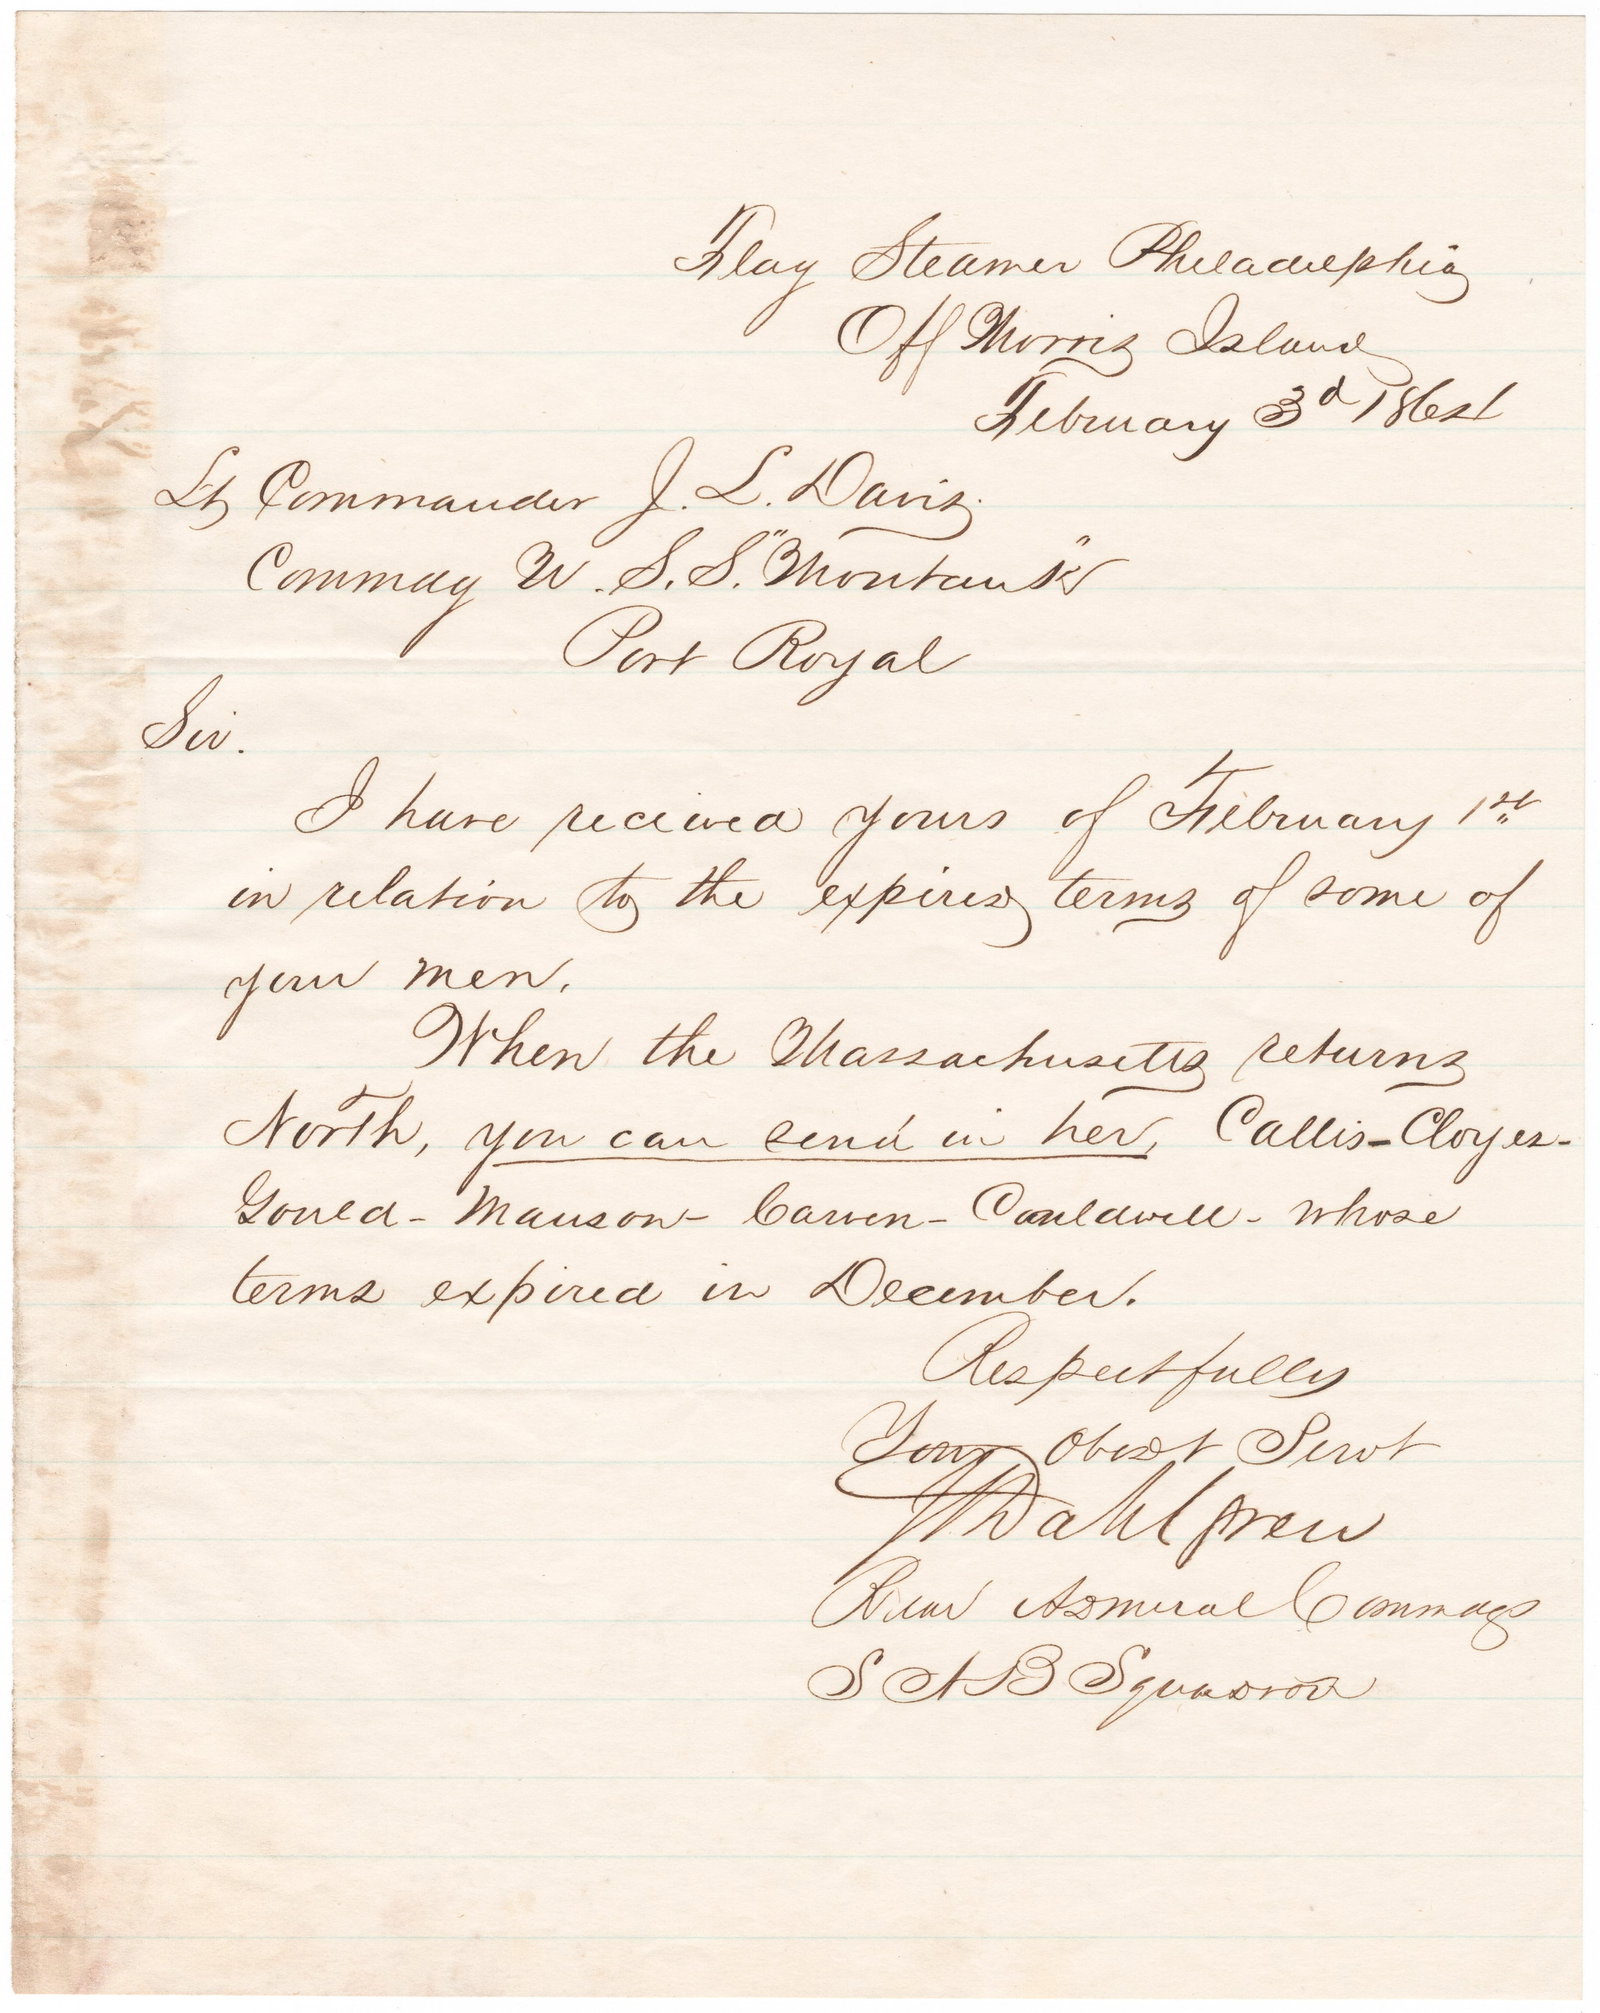 Flag Steamer Philadelphia
Off Morris Island
February 3d 1864
Lt Commander J. L. Davis.
Commdg U. S. S. "Montauk"
Port Royal
Sir.
I have received yours of February 1st
in relation to the expired terms of some of
your men.
When the Massachusetts returns
North, you can send in her, Callis - Cloyes -
Gould - Manson - Carven - Cauldwell - whose
terms expired in December.
Respectfully
Your Obedt Servt
J A Dahlgren
Rear Admiral Commdg
S A B Squadron